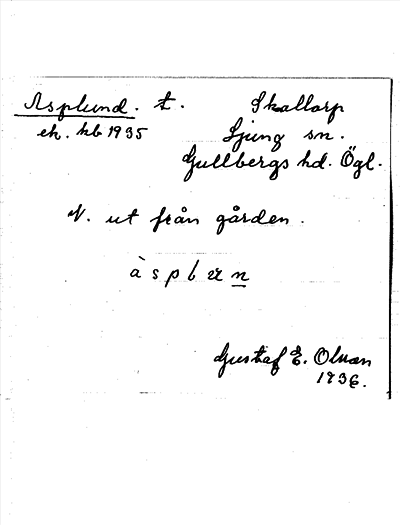 Asplund. t. Skallarp
ek. kb 1935 Ljung sn.
Gullbergs hd. Ögl.
N. ut från gården.
Gustaf E. Olsan
1936.